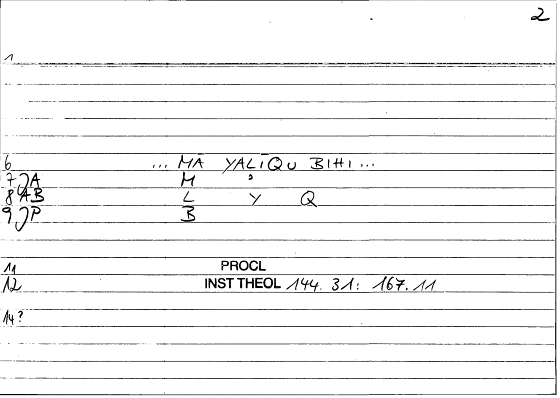 2
1
6 ... MĀ YALĪQU BIHI ...
7 JA M ʾ
8 AB L Y Q
9 JP B
11 PROCL
12 INST THEOL 144. 31: 167.11
14?